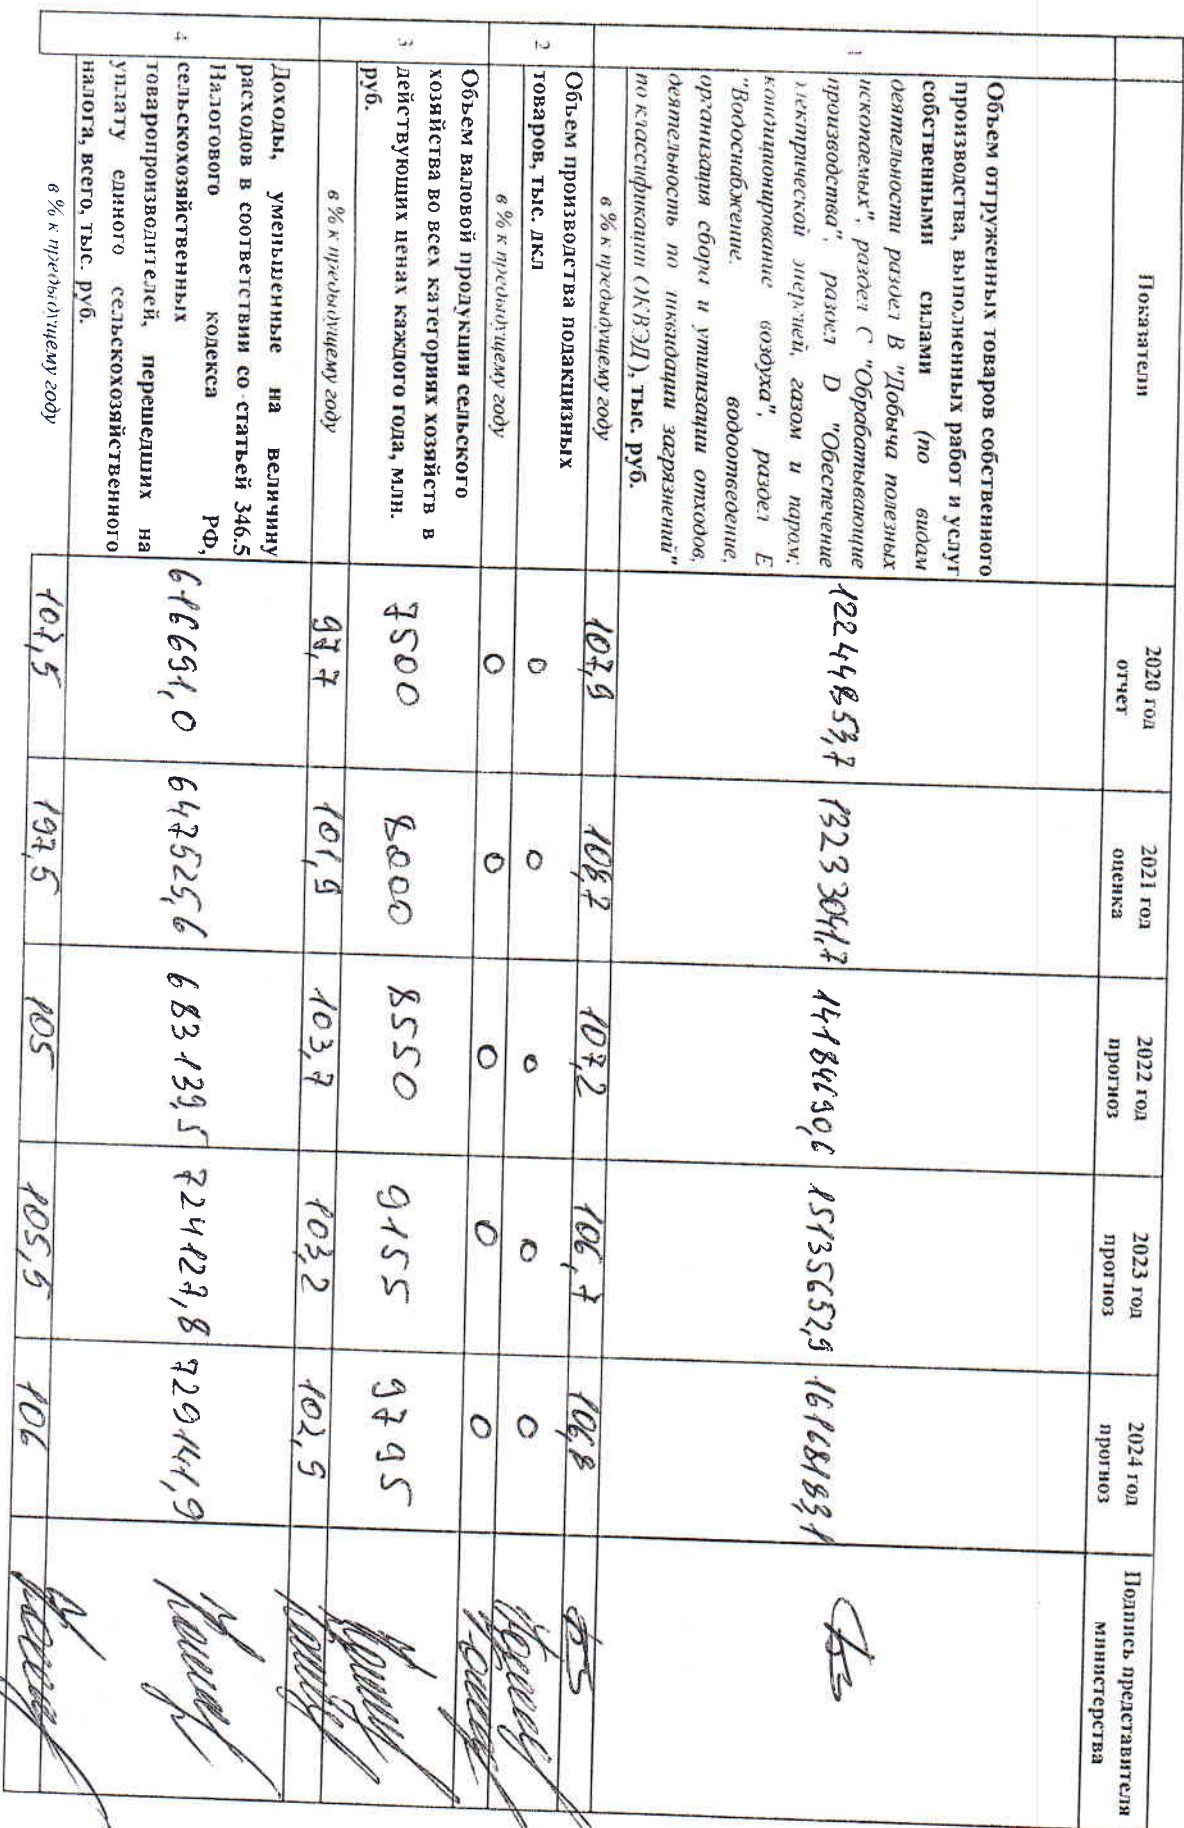 Показатели
2020 год отчет
2021 год оценка
2022 год прогноз
2023 год прогноз
2024 год прогноз
Подпись представителя министерства
1
Объем отгруженных товаров собственного
производства, выполненных работ и услуг
собственными силами (по видам
деятельности раздел B "Добыча полезных
ископаемых", раздел C "Обрабатывающие
производства", раздел D "Обеспечение
электрической энергией, газом и паром;
кондиционирование воздуха", раздел E
"Водоснабжение. водоотведение,
организация сбора и утилизации отходов,
деятельность по ликвидации загрязнений"
по классификации ОКВЭД), тыс. руб.
12244853,7
13233041,7
14184690,6
15135652,9
16168183,1
в % к предыдущему году
107,9
108,7
107,2
106,7
106,8
2
Объем производства подакцизных
товаров, тыс. дкл
0
0
0
0
0
в % к предыдущему году
0
0
0
0
0
3
Объем валовой продукции сельского
хозяйства во всех категориях хозяйств в
действующих ценах каждого года, млн.
руб.
7500
8000
8550
9155
9795
в % к предыдущему году
97,7
101,9
103,7
103,2
102,9
4
Доходы, уменьшенные на величину
расходов в соответствии со статьей 346.5
Налогового кодекса РФ,
сельскохозяйственных
товаропроизводителей, перешедших на
уплату единого сельскохозяйственного
налога, всего, тыс. руб.
616691,0
647525,6
683139,5
724127,8
729141,9
в % к предыдущему году
107,5
197,5
105
105,5
106